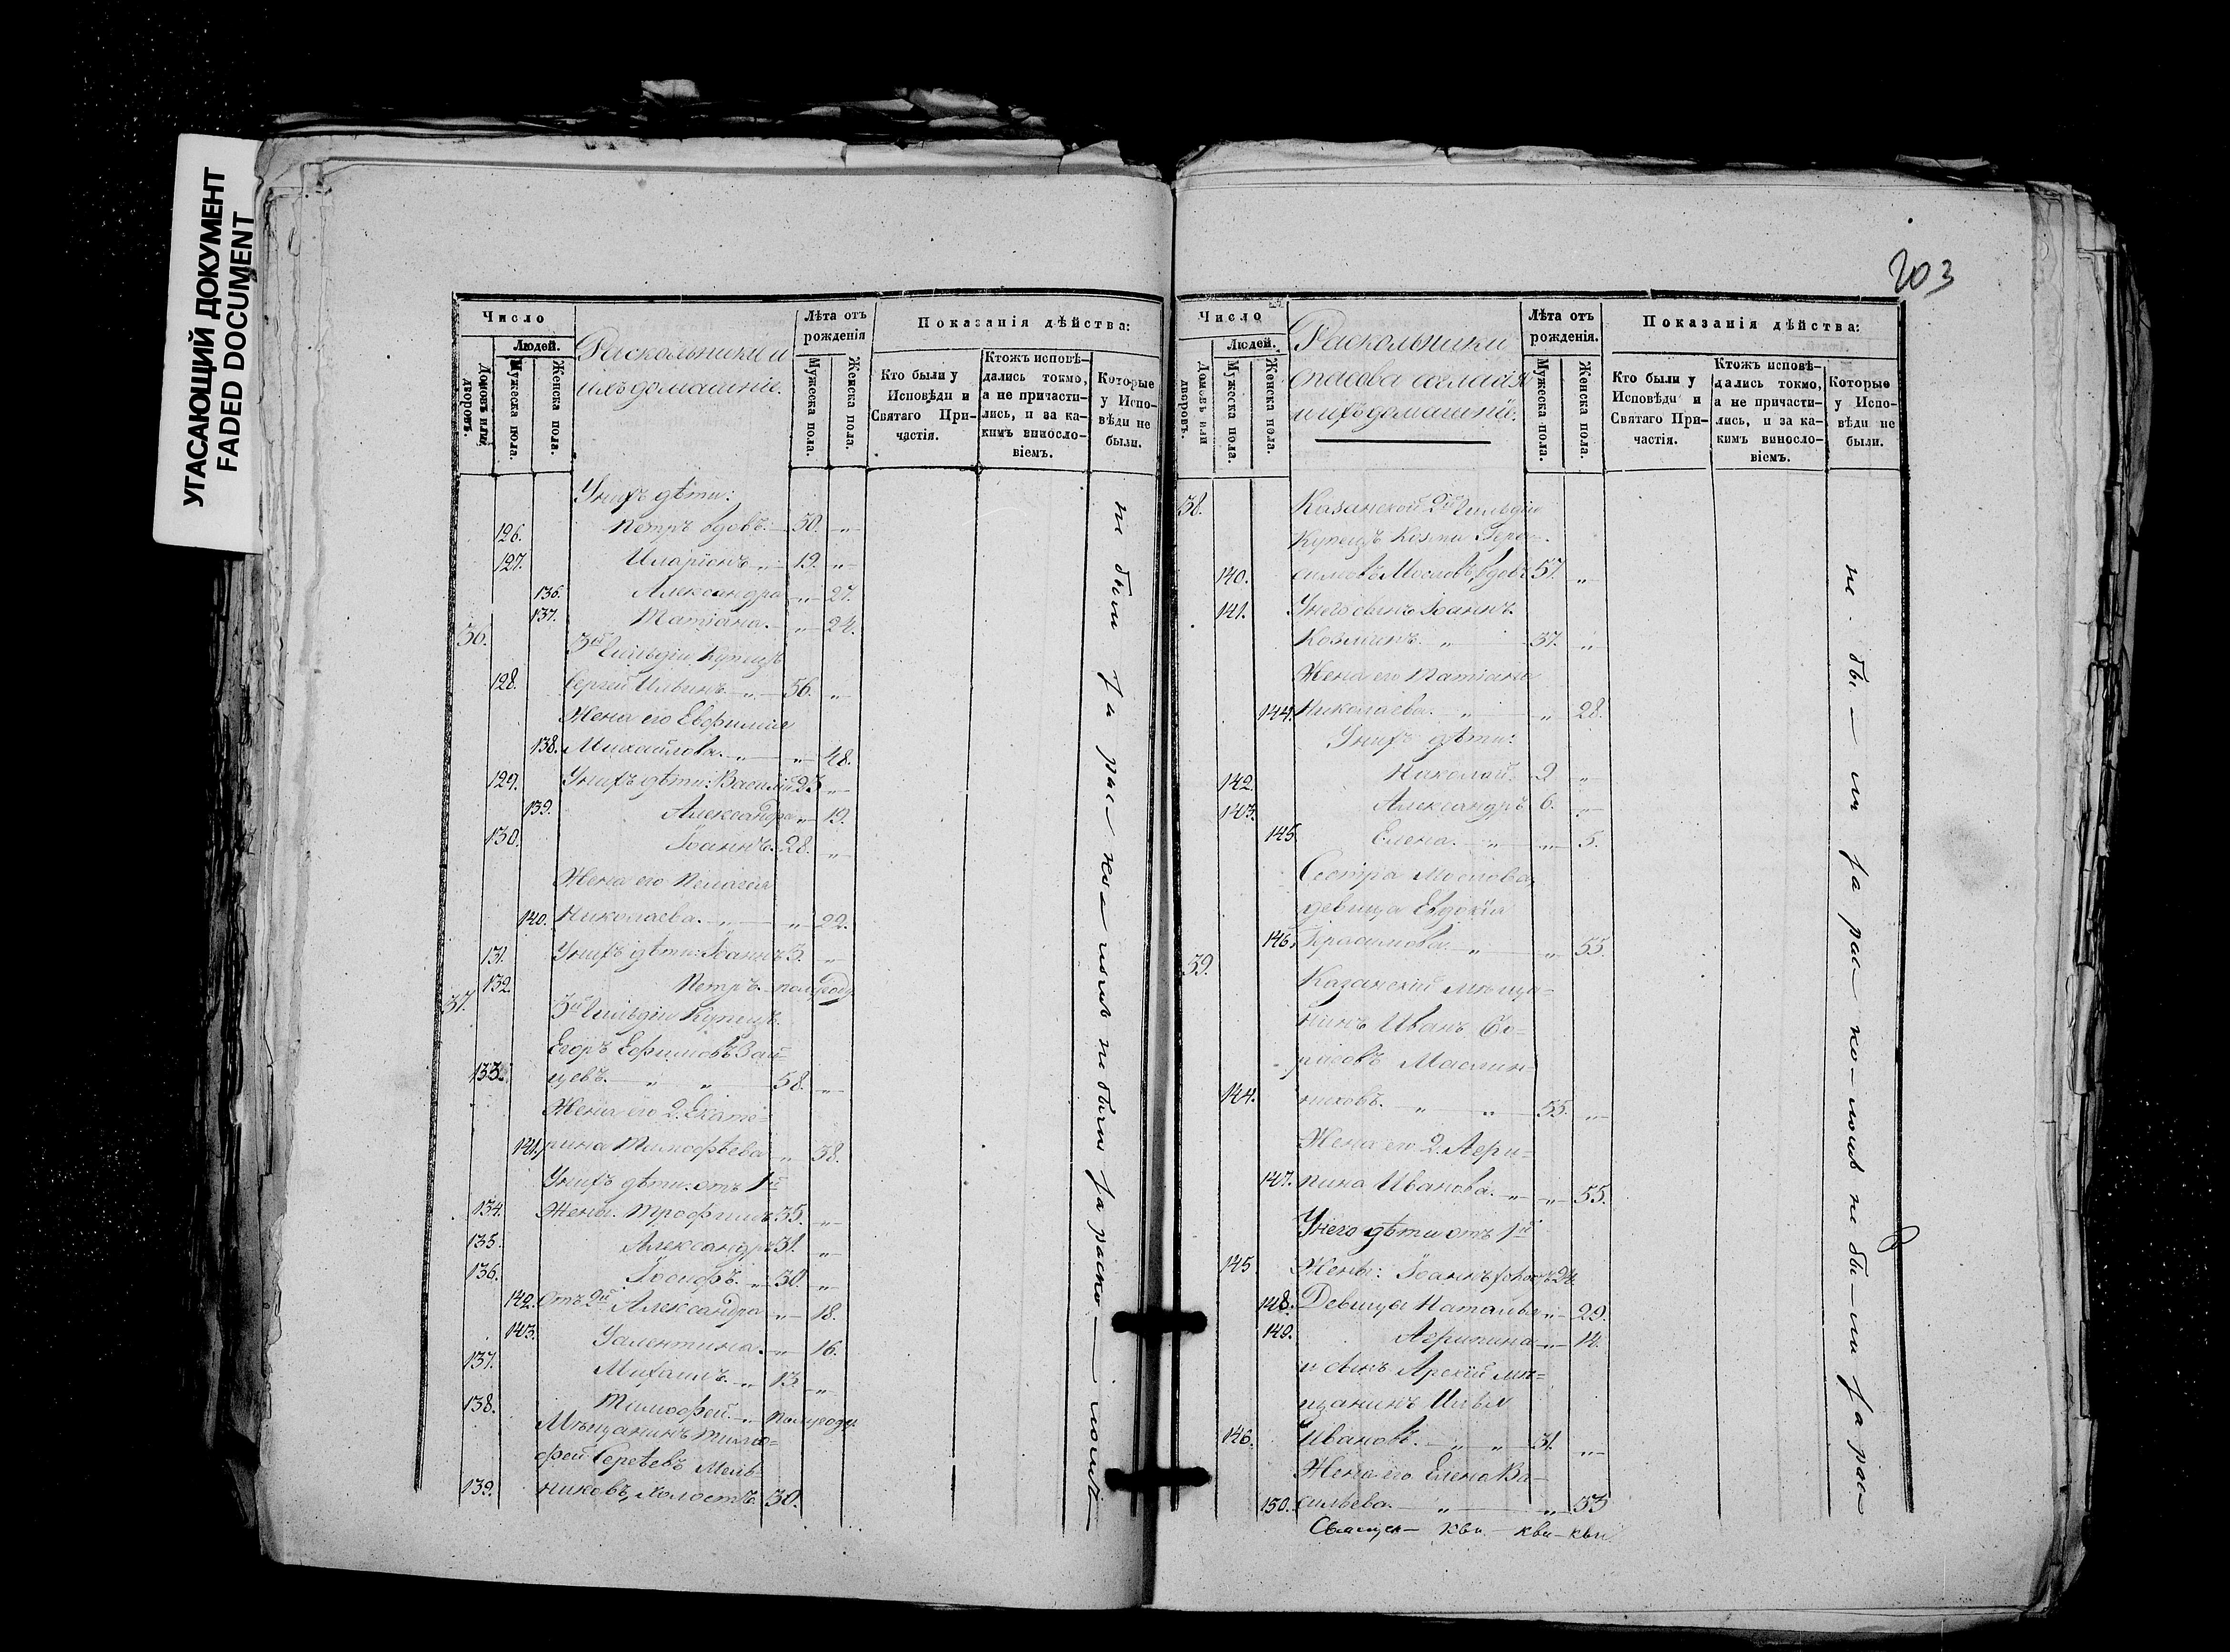 УГАСАЮЩИЙ ДОКУМЕНТ
FADED DOCUMENT
Число
Людей.
Домовъ или дворовъ.
Мужеска пола.
Женска пола.
Раскольники и
ихъ домашніе.
Лѣта отъ рожденія
Мужеска пола.
Женска пола.
Показанія дѣйства:
Кто были у Исповѣди и Святаго Причастія.
Ктожъ исповѣдались токмо, а не причастились, и за какимъ винословіемъ.
Которые у Исповѣди не были.
У нихъ дѣти:
126. Петръ вдовъ. 50. "
127. Иларіонъ " 19. "
136. Александра " 27.
137. Татіана. " 24.
36. 3ей Гильдіи Купецъ
128. Сергей Ильинъ " 56. "
Жена его Евфимія
138. Михайлова " " 48.
129. У нихъ дѣти: Василій 23 "
139. Александра " 19.
130. Іоаннъ. 28. "
Жена его Пелагея
140. Николаева. " " 22.
131. У нихъ дѣти: Іоаннъ 3. "
132. Петръ. полугоду
37. 3й Гильдіи Купецъ
Егоръ Ефимовъ Зай-
133. цевъ. " " 58. "
Жена его 2. Екате-
141. рина Тимофѣева " 38.
У нихъ дѣти: отъ 1й
134. Жены. Трофимъ 35. "
135. Александръ 31. "
136. Іосифъ. " 30. "
142. Отъ 2й Александра " 18.
143. Валентина. " 16.
137. Михаилъ. " 13. "
138. Тимофей. " Полугоду
Мѣщанинъ Тимо-
фей Сергѣевъ Мель-
139. никовъ, холостъ 30.
не были за рас-ко-ломъ не были за раско-ломъ
203
Число
Людей.
Домовъ или дворовъ.
Мужеска пола.
Женска пола.
Раскольники
Спасова согласія
и ихъ домашніе.
Лѣта отъ рожденія.
Мужеска пола.
Женска пола.
Показанія дѣйства:
Кто были у Исповѣди и Святаго Причастія.
Ктожъ исповѣдались токмо, а не причастились, и за какимъ винословіемъ.
Которые у Исповѣди не были.
38. Казанской 2й Гильдіи
Купецъ Козма Гера-
140. симовъ Мословъ, вдовъ 57. "
141. У него сынъ Іоаннъ
Козминъ. " 37. "
Жена его Татіана
144. Николаева. " " 28.
У нихъ дѣти:
142. Николай. 2 "
143. Александръ 6. "
145. Елена. " " 5.
Сестра Мослова,
девица Евдокія
146. Герасимова. " " 55.
39. Казанскій мѣща-
нинъ Иванъ Бо-
рисовъ Маслян-
144. никовъ. " " 55. "
Жена его 2. Агри-
147. пина Иванова. " " 55.
У него дѣти отъ 1й
145. Жены: Іоаннъ 24.
148. Девица Наталья " 29.
149. Агрипина " 14.
и сынъ Арскій мѣ-
щанинъ Илья
146. Ивановъ. " " 31. "
Жена его Елена Ва-
150. сильева. " " 33
не бы-ли за рас-ко-ломъ не бы-ли за рас